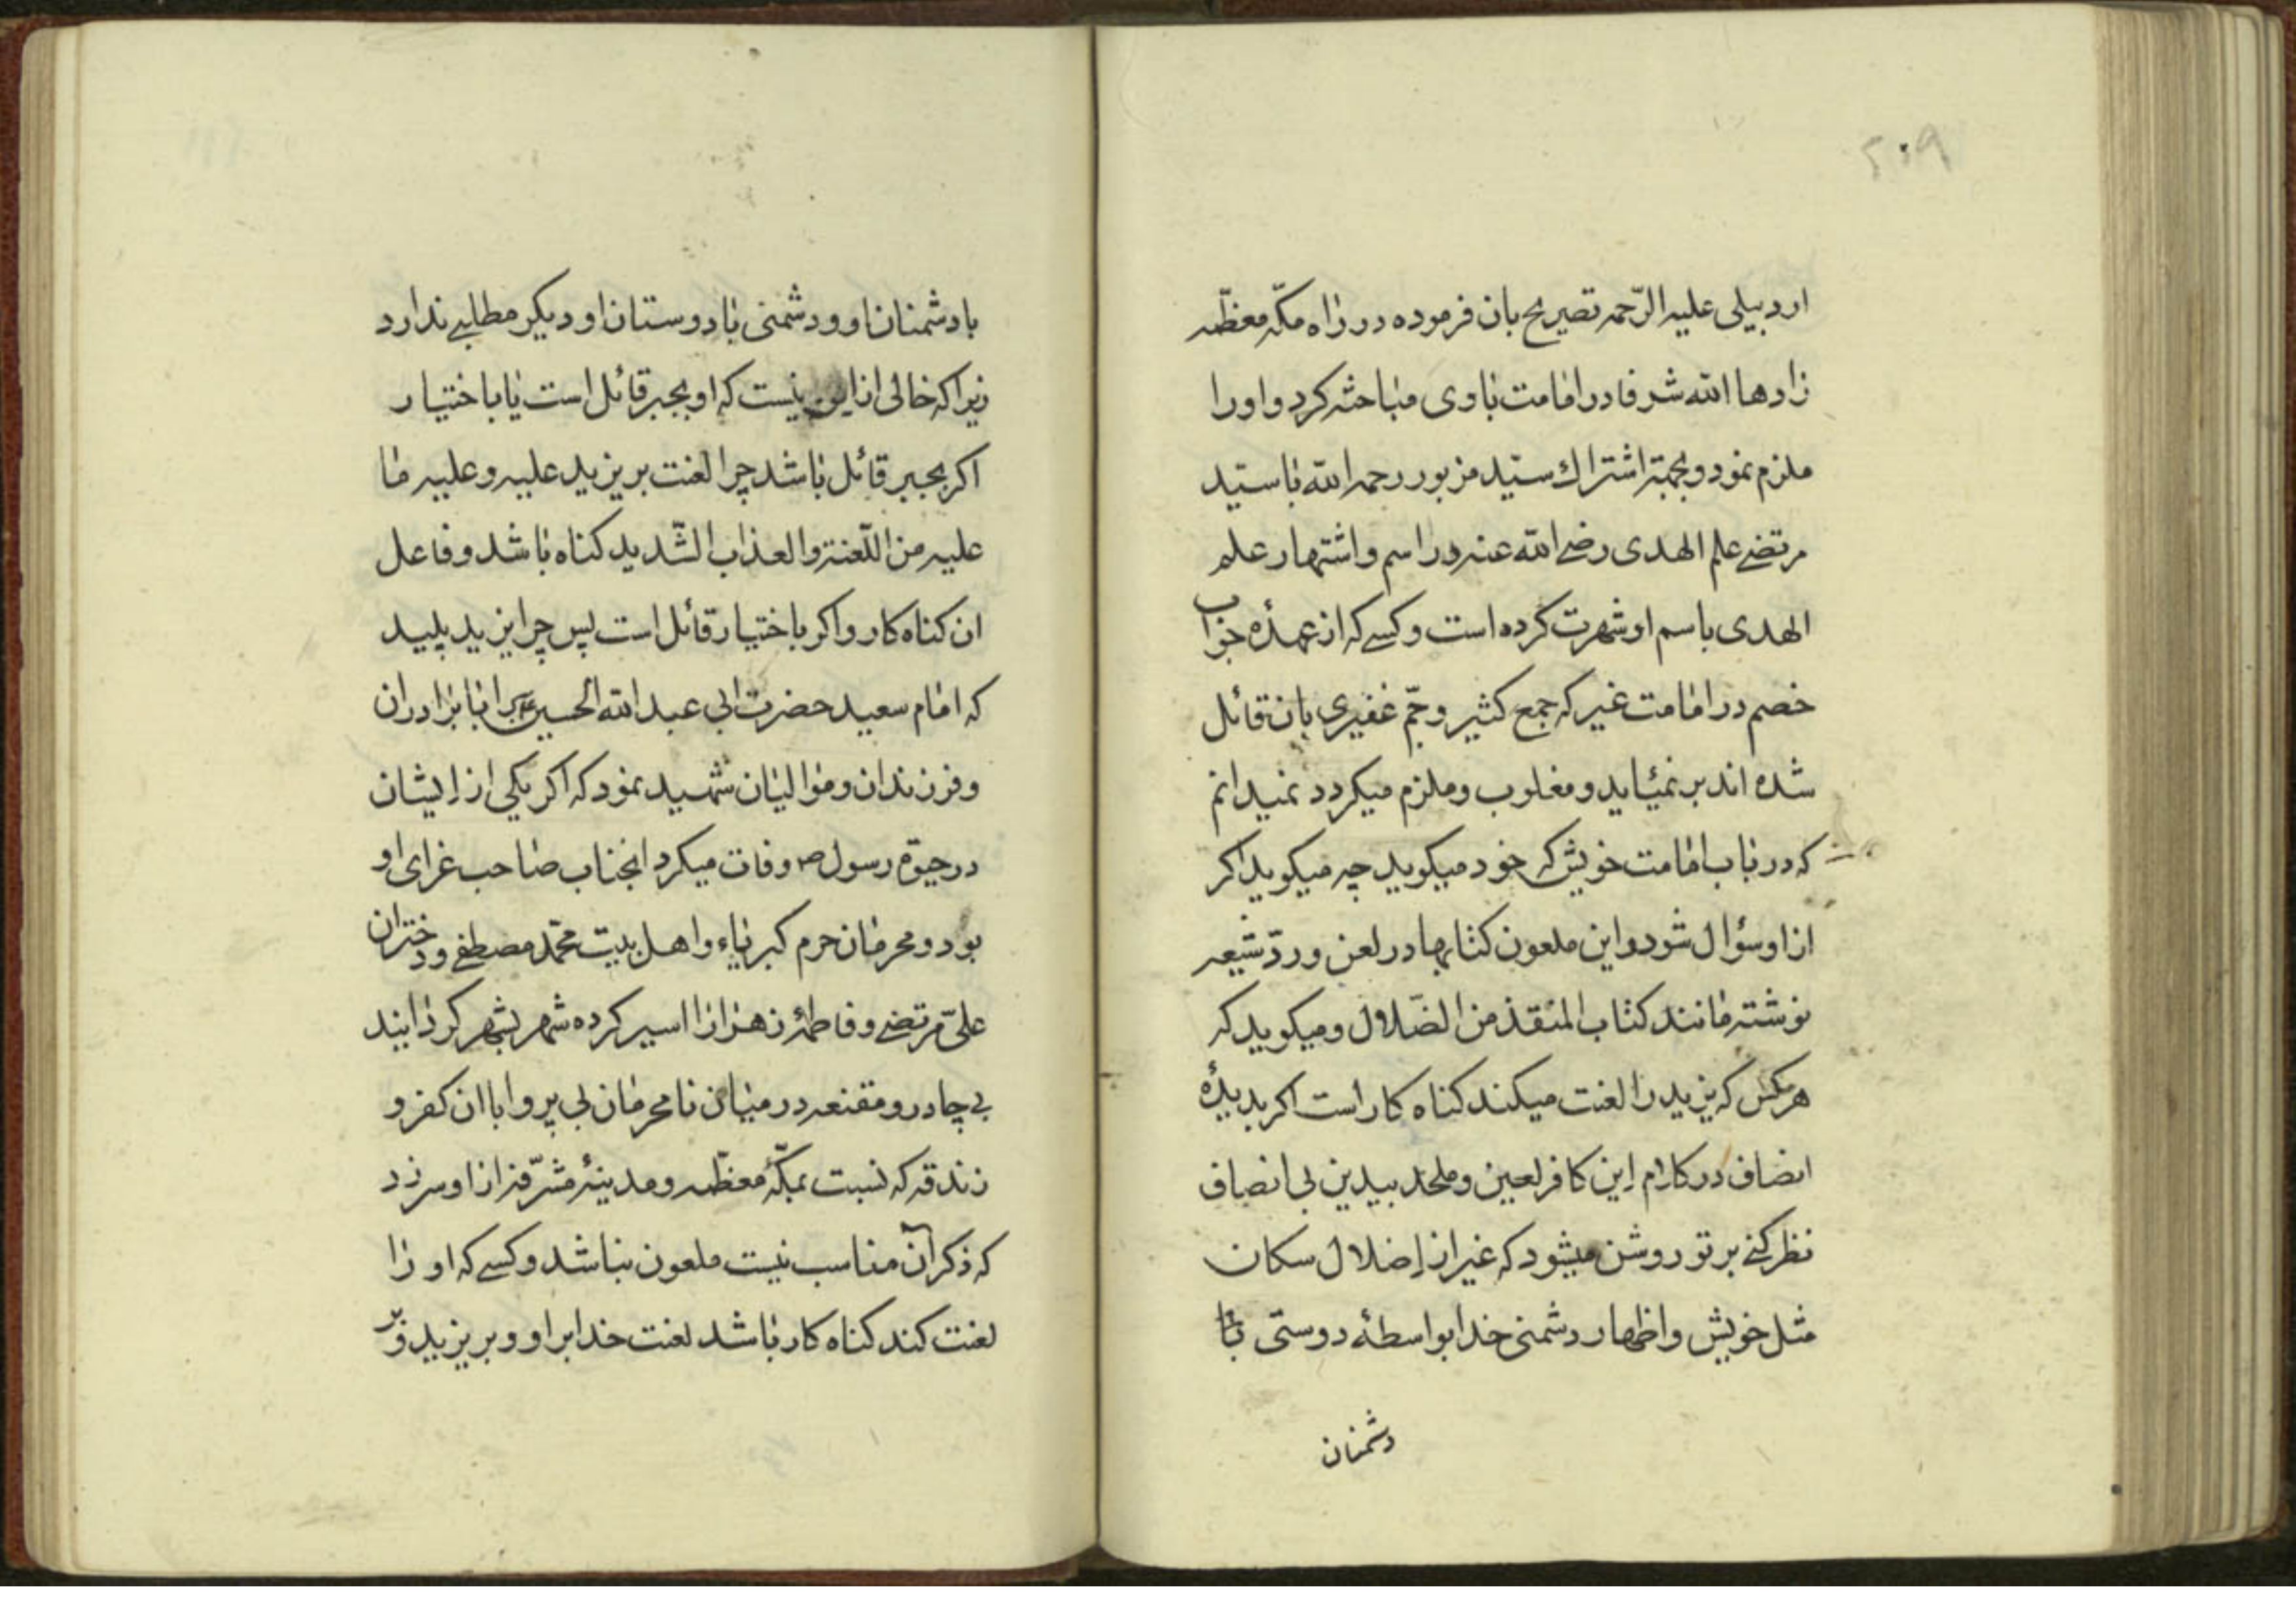 ۲۰۹
اردبیلی علیه الرّحمه تصیریح بان فرموده در راه مکّه معظّمه
زادها الله شرفا در امامت باوی مباحثه کرد و اورا
ملزم نمود و بجهة اشتراك سیّد مزبور رحمه الله با سیّد
مرتضی علم الهدی رضی الله عنه در اسم و اشتهار علم
الهدی باسم او شهرت کرده است و کسی که از عهدهٔ جواب
خصم در امامت غیر که جمع کثیر و جمّ غفیری بان قائل
شده اند بر نمیآید و مغلوب و ملزم میکردد نمیدانم
که در باب امامت خویش که خود میکوید چه میکوید اکر
از او سؤال شود و این ملعون کتابها در لعن و ردّ شیعه
نوشته مانند کتاب المنقذ من الضّلال و میکوید که
هرکس که یزید را لعنت میکند کناه کار است اکر بدیدهٔ
انصاف در کلام این کافر لعین و ملحد بیدین بی انصاف
نظر کنی بر تو روشن میشود که غیر از اضلال سکان
مثل خویش و اظهار دشمنی خدا بواسطهٔ دوستی با
دشمنان
با دشمنان او و دشمنی با دوستان او دیکر مطلبی ندارد
زیرا که خالی از این نیست که او بجبر قائل است یا باختیار
اکر بجبر قائل باشد چرا لعنت بر یزید علیه و علیه ما
علیه من اللّعنة و العذاب الشّدید کناه باشد و فاعل
ان کناه کار و اکر باختیار قائل است پس چرا یزید پلید
که امام سعید حضرت ابی عبد الله الحسین ع را با برادران
و فرزندان و موالیان شهید نمود که اکر یکی از ایشان
در حیوة رسول ص وفات میکرد انجناب صاحب عزای او
بود و محرمان حرم کبریاء و اهل بیت محمّد مصطفی و دختران
علیّ مرتضی و فاطمهٔ زهرا را اسیر کرده شهر بشهر کردانید
بی چادر و مقنعه در میان نامحرمان بی پروا با ان کفر و
زندقه که نسبت بمکّهٔ معظّمه و مدینهٔ مشرّفه از او سر زد
که ذکر آن مناسب نیست ملعون نباشد و کسی که او را
لعنت کند کناه کار باشد لعنت خدا بر او و بر یزید و بر